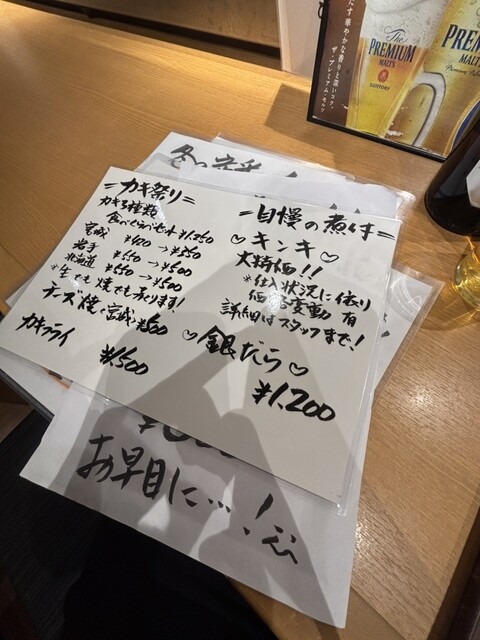 =カキ祭り=
カキ3種類
食べくらべセット ¥1,250
宮城 ¥400→¥350
岩手 ¥550→¥500
北海道 ¥550→¥500
*生でも焼でも承ります!
チーズ焼(宮城) ¥500
カキフライ
¥1,500
=自慢の煮付=
♡キンキ♡
大特価!!
*仕入状況に依り
価格変動 有
詳細はスタッフまで!
♡銀だら♡
¥1,200
お早目に…!
華やかな香りと深いコク。
ザ・プレミアム・モルツ
The
PREMIUM
MALT'S
SUNTORY
The
PREMIUM
MALT'S